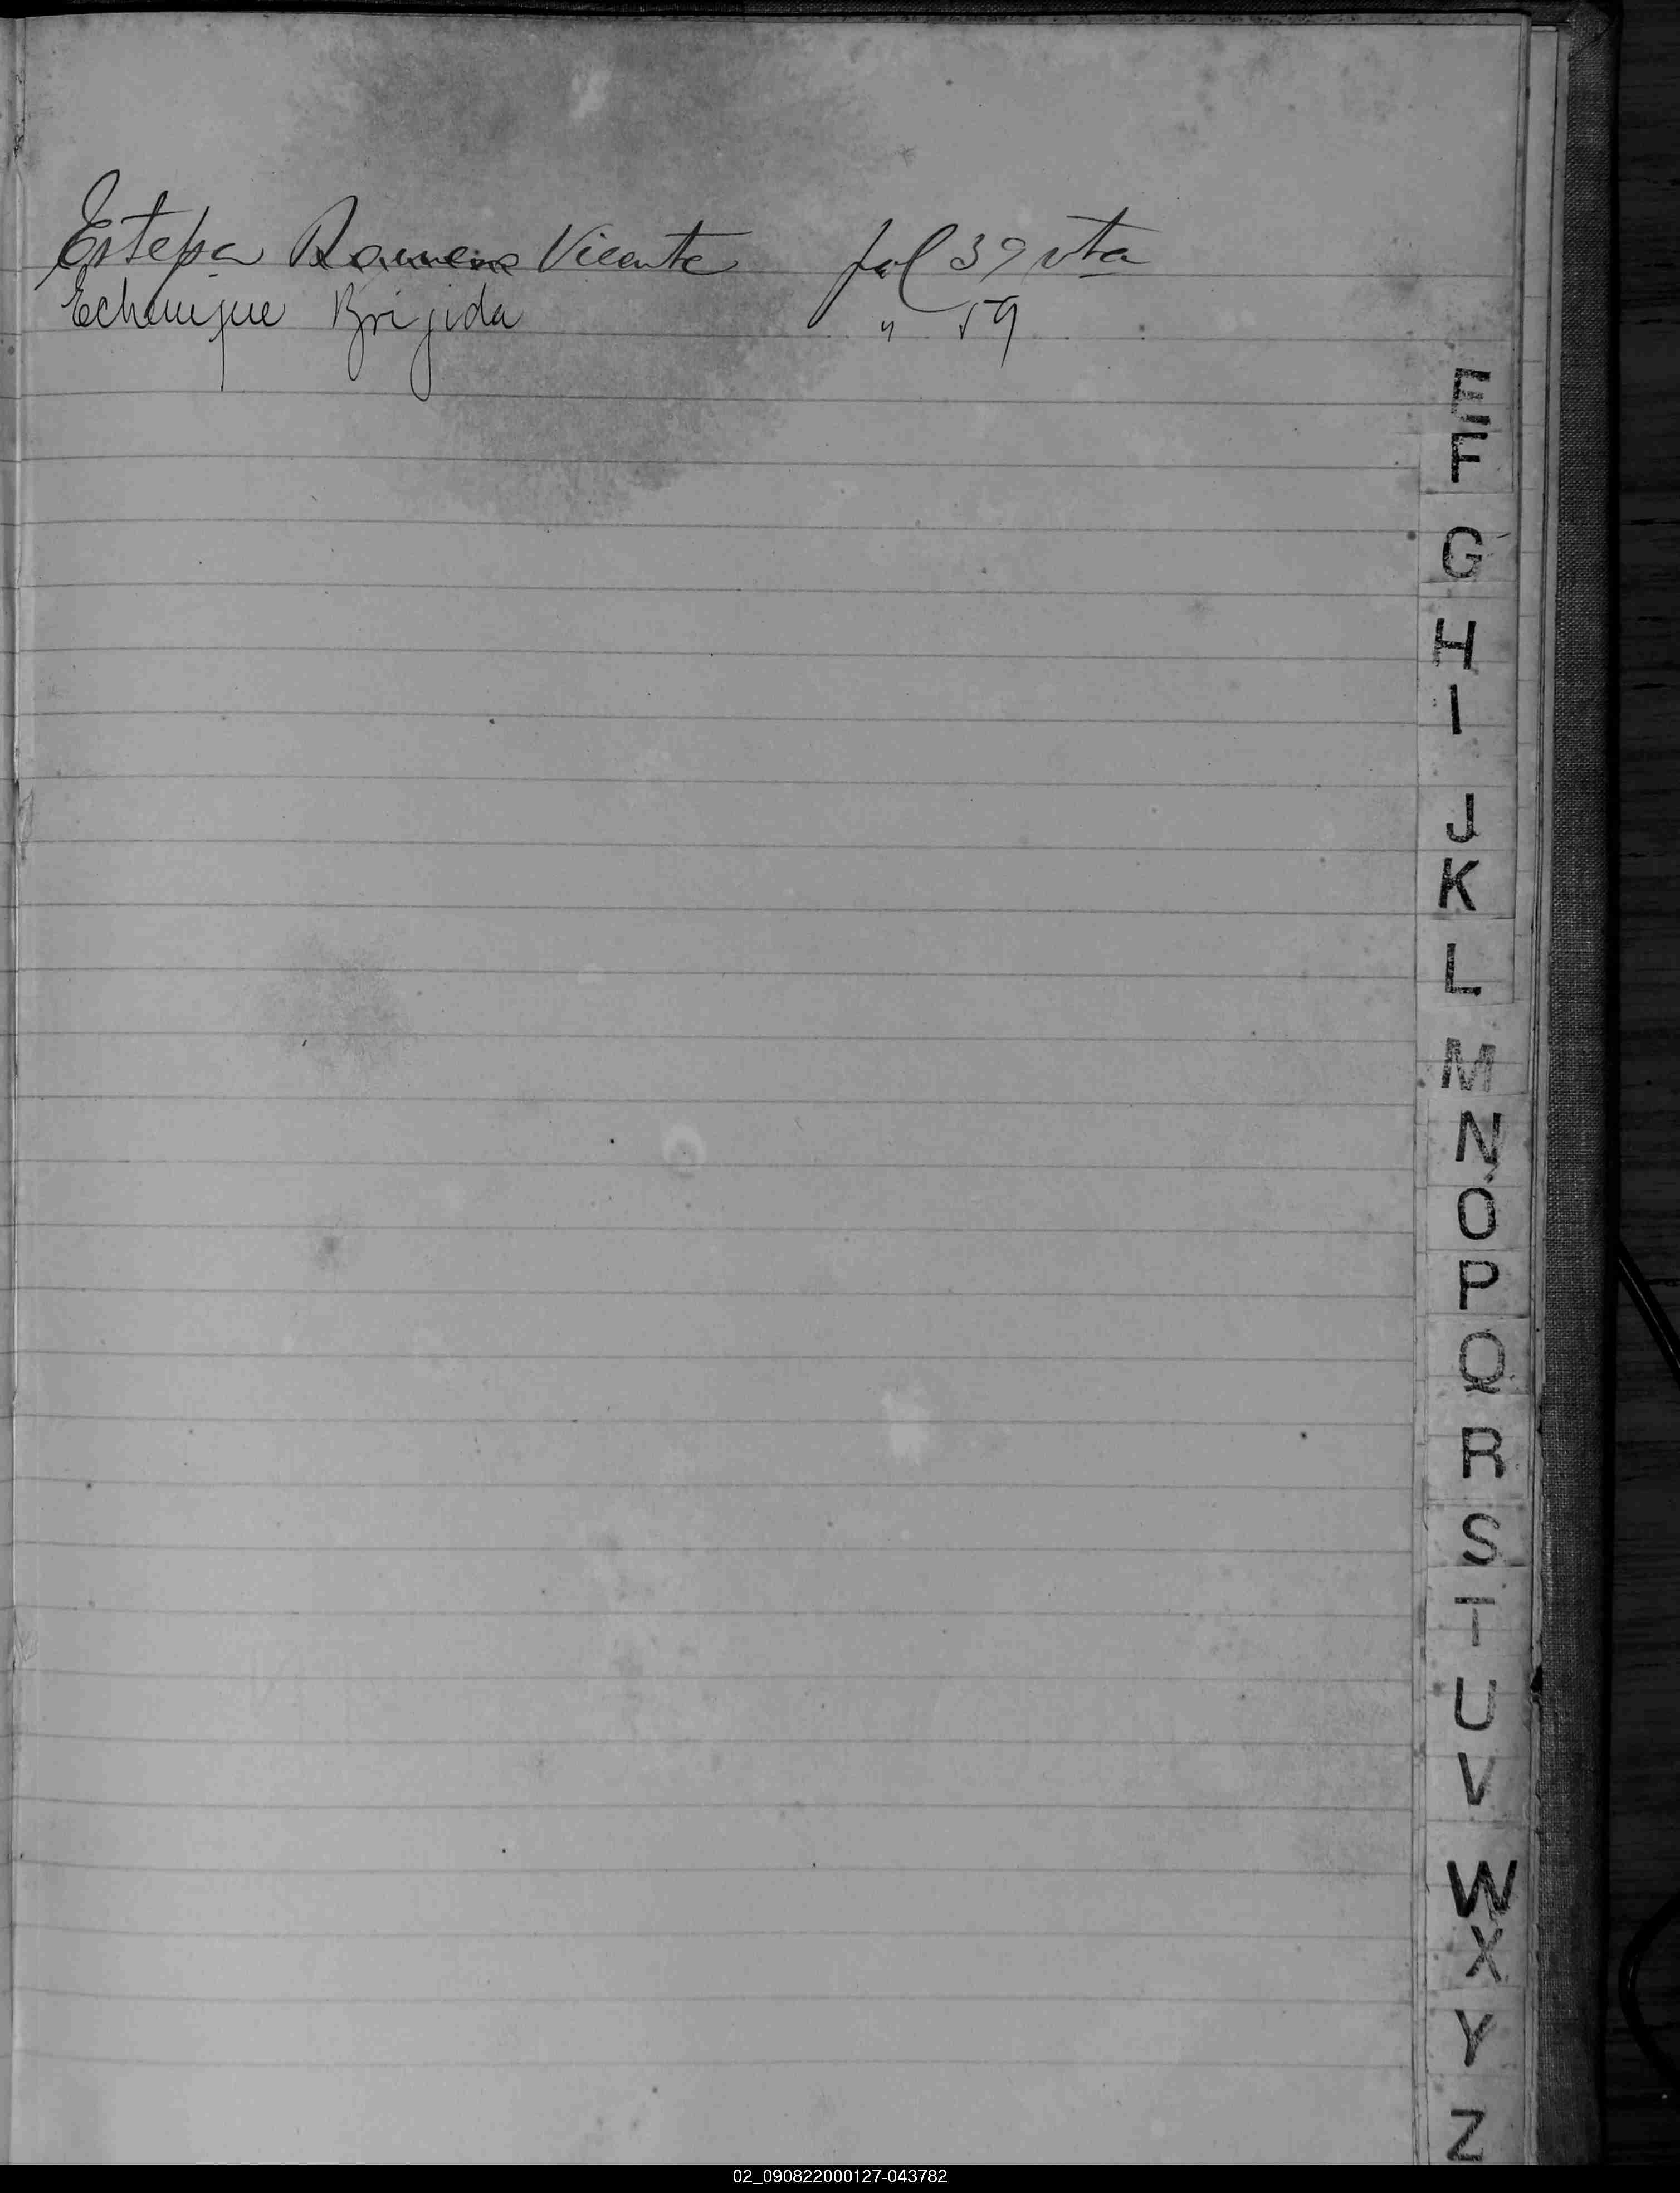 Estepa Vicente fol 39 vta
Echenique Brijida " 59
E
F
G
H
I
J
K
L
M
N
O
P
Q
R
S
T
U
V
W
X
Y
Z
02_090822000127-043782